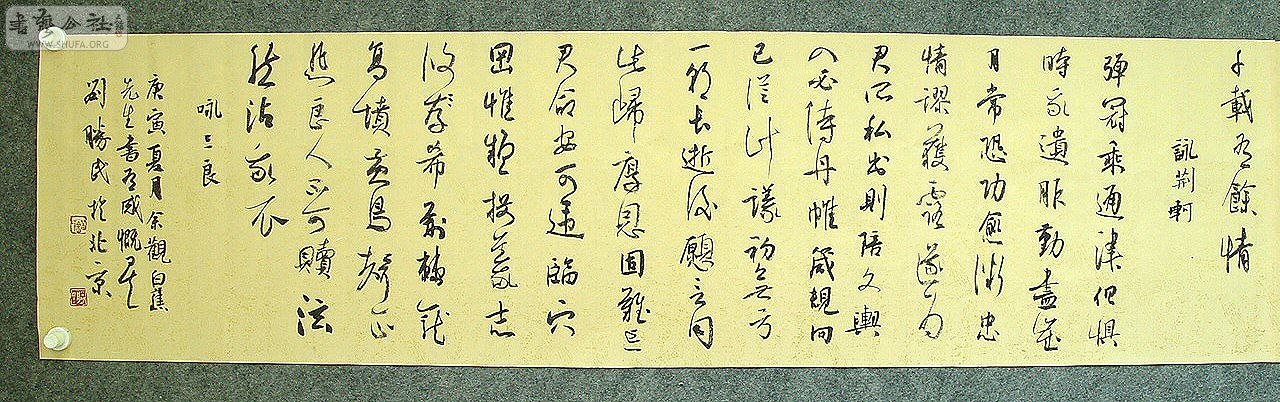 書藝公社
WWW.SHUFA.ORG
千載有餘情
詠荆軻
彈冠乘通津但惧
時我遺服勤盡歲
月常恐功愈微忠
情謬獲露遂為
君所私出則陪文輿
入必侍丹帷箴規向
已從計議初無亏
一朝長逝後願言同
此歸厚恩固難忘
君命安可違臨穴
罔惟疑投義志
攸希棘籠
高墳黃鳥聲正
悲良人不可贖泫
然沾我衣
咏三良
庚寅夏月余觀白蕉
先生書有感慨
劉勝民於北京